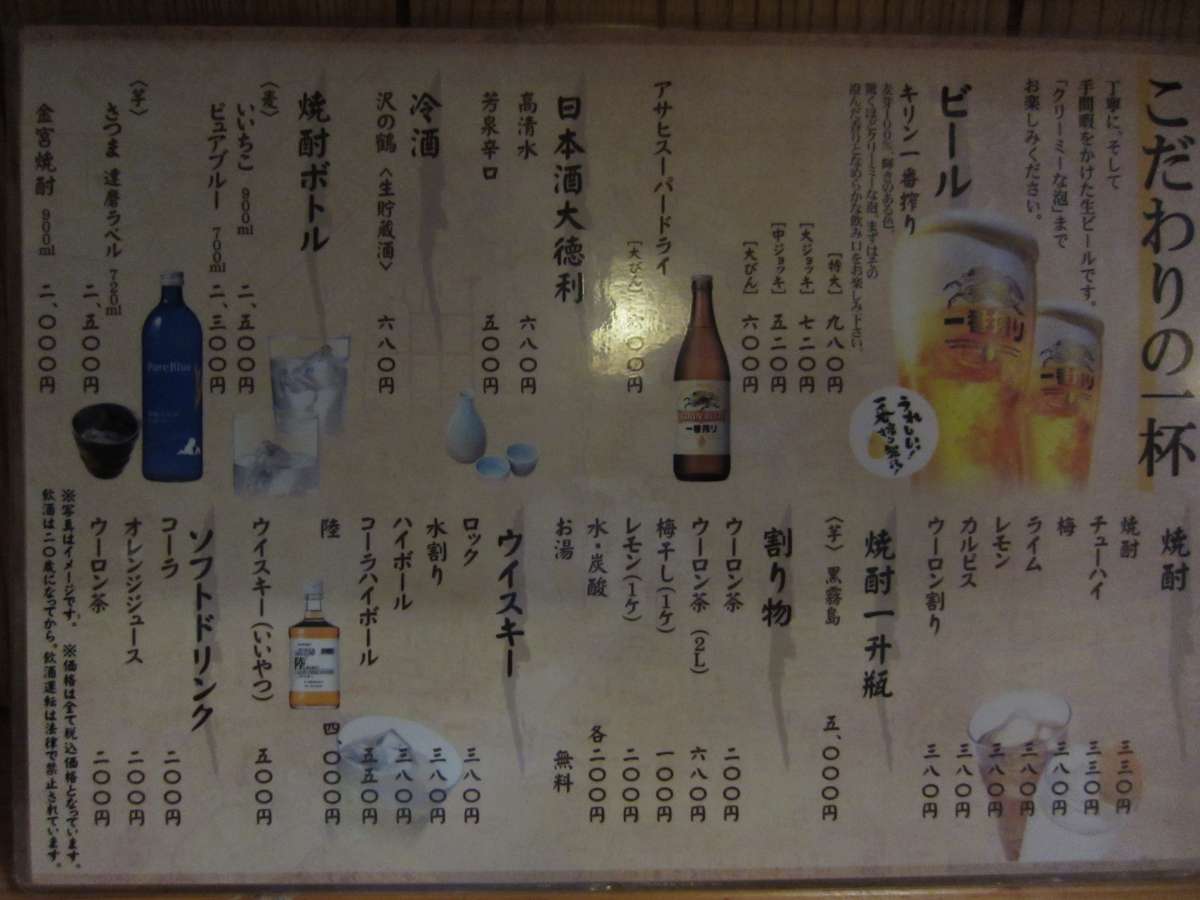 こだわりの一杯
丁寧に、そして
手間暇をかけた生ビールです。
「クリーミーな泡」まで
お楽しみください。
ビール
キリン一番搾り
麦芽100%、輝きのある色、
驚くほどクリーミーな泡。まずはその
澄んだ香りとなめらかな飲み口をお楽しみ下さい。
[特大] 九八〇円
[大ジョッキ] 七二〇円
[中ジョッキ] 五二〇円
[大びん] 六〇〇円
アサヒスーパードライ
[大びん] 〇〇円
日本酒大徳利
高清水 六八〇円
芳泉辛口 五〇〇円
冷酒
沢の鶴〈生貯蔵酒〉 六八〇円
焼酎ボトル
〈麦〉
いいちこ 900ml 二、五〇〇円
ピュアブルー 700ml 二、三〇〇円
〈芋〉
さつま 達磨ラベル 720ml 二、五〇〇円
金宮焼酎 900ml 二、〇〇〇円
一番搾り
一番搾り
うれしい!
一番搾り
PureBlue
焼酎
焼酎 三三〇円
チューハイ 三三〇円
梅 三八〇円
ライム 三八〇円
レモン 三八〇円
カルピス 三八〇円
ウーロン割り 三八〇円
焼酎一升瓶
〈芋〉黒霧島 五、〇〇〇円
割り物
ウーロン茶 二〇〇円
ウーロン茶(2L) 六八〇円
梅干し(1ケ) 一〇〇円
レモン(1ケ) 二〇〇円
水・炭酸 各二〇〇円
お湯 無料
ウイスキー
ロック 三八〇円
水割り 三八〇円
ハイボール 三八〇円
コーラハイボール 五五〇円
陸 四、〇〇〇円
ウイスキー(いいやつ) 五〇〇円
陸
ソフトドリンク
コーラ 二〇〇円
オレンジジュース 二〇〇円
ウーロン茶 二〇〇円
※写真はイメージです。 ※価格は全て税込価格となっています。
飲酒は二〇歳になってから。飲酒運転は法律で禁止されています。